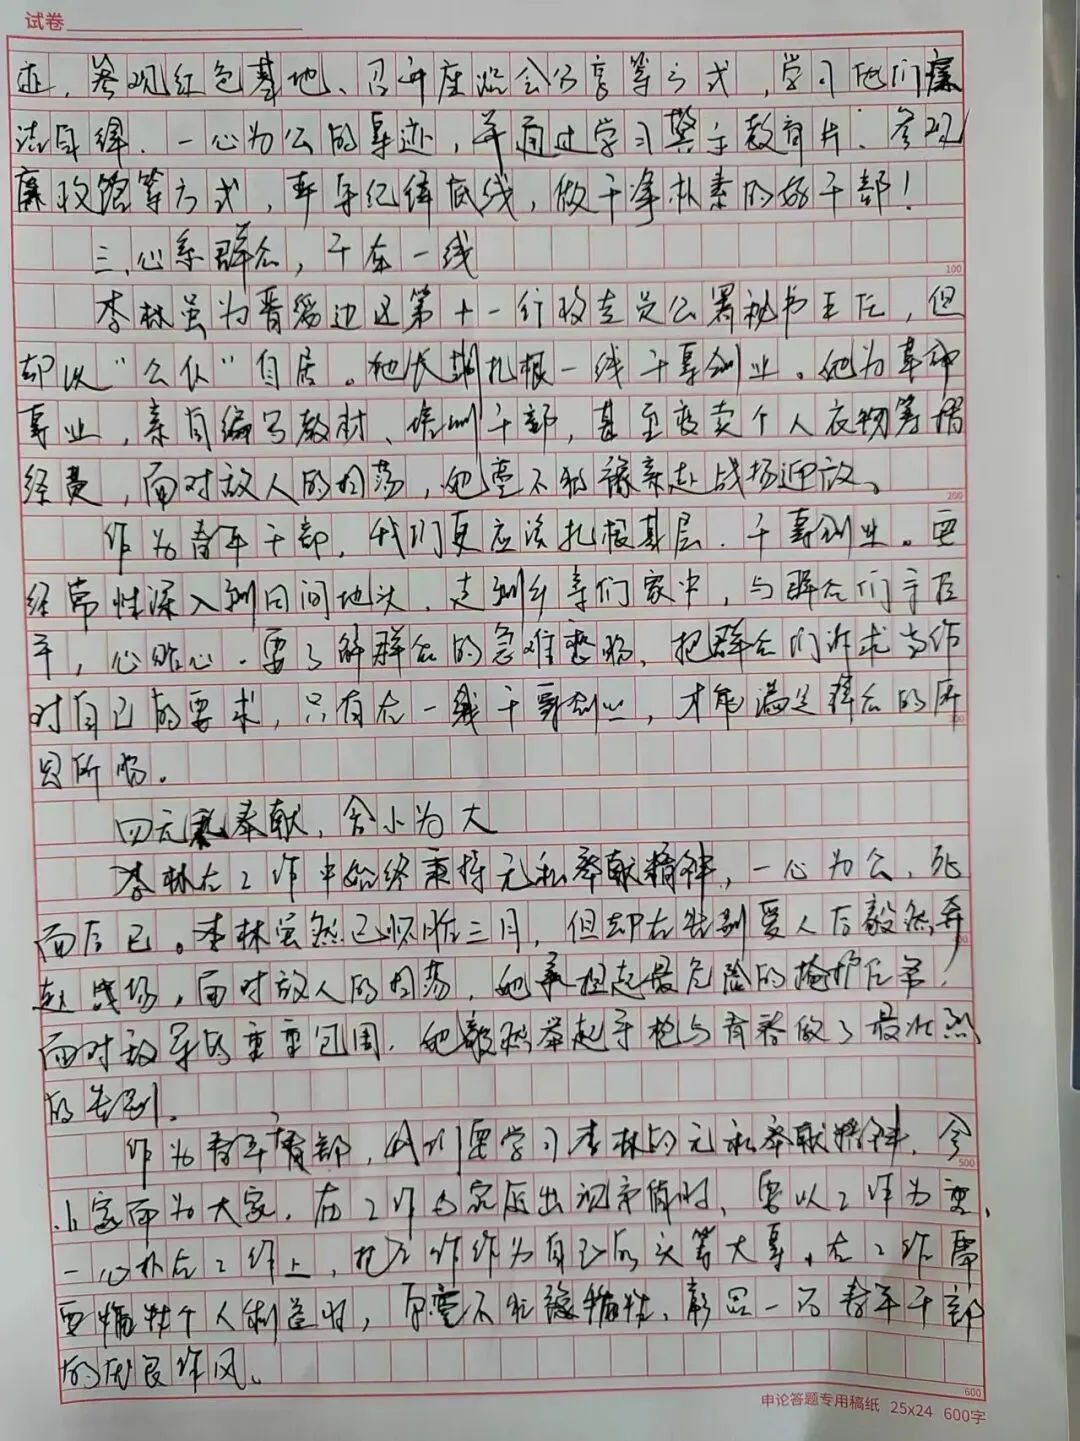 试卷
迹,参观红色基地、召开座谈会分享等方式,学习他们廉
洁自律、一心为公的事迹,并通过学习警示教育片、参观
廉政馆等方式,牢牢纪律底线,做干净朴素的好干部!
三、心系群众,干在一线
李林虽为晋绥边区第十一行政专员公署秘书主任,但
却以“公仆”自居。她长期扎根一线干事创业。她为革命
事业,亲自编写教材、培训干部,甚至变卖个人衣物筹措
经费,面对敌人的扫荡,她毫不犹豫亲赴战场迎敌。
作为青年干部,我们更应该扎根基层、干事创业。要
经常性深入到田间地头、走到乡亲们家中,与群众们手拉
手,心贴心。要了解群众的急难愁盼、把群众们诉求当作
对自己的要求,只有在一线干事创业,才能满足群众的所
思所盼。
四无私奉献,舍小为大
李林在工作中始终秉持无私奉献精神,一心为公、死
而后已。李林虽然已怀胎三月,但却在告别爱人后毅然奔
赴战场,面对敌人的扫荡,她承担起最危险的掩护任务,
面对敌军的重重包围,她毅然举起手枪与青春做了最壮烈
的告别。
作为青年干部,我们要学习李林的无私奉献精神,舍
小家而为大家,在工作与家庭出现矛盾时,要以工作为重,
一心扑在工作上,把工作作为自己的头等大事,在工作需
要牺牲个人利益时,应毫不犹豫牺牲,彰显一名青年干部
的优良作风。
100
200
300
400
500
600
申论答题专用稿纸 25x24 600字